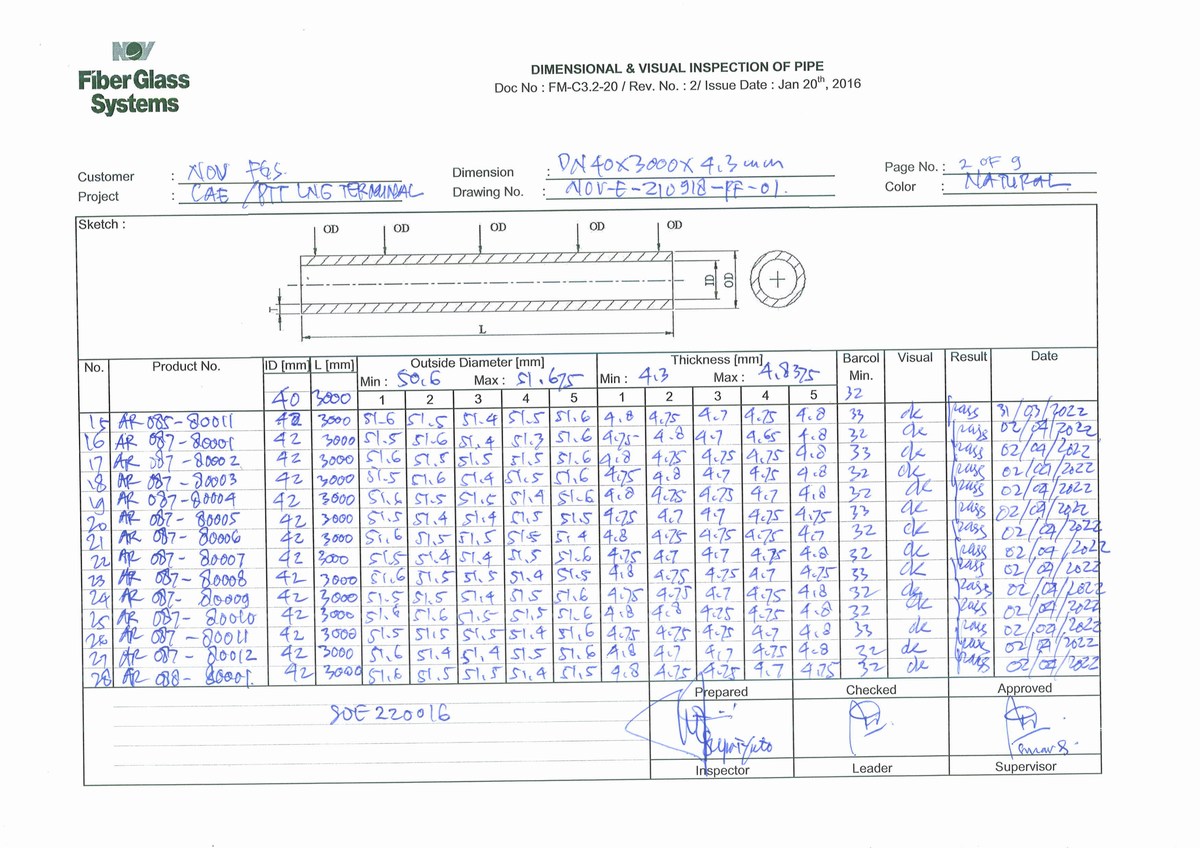 NOV
Fiber Glass
Systems
DIMENSIONAL & VISUAL INSPECTION OF PIPE
Doc No : FM-C3.2-20 / Rev. No. : 2/ Issue Date : Jan 20th, 2016
Customer : NOV FGS. Dimension : DN40X3000X4.3mm Page No. : 2 OF 9
Project : CAE /PTT LNG TERMINAL Drawing No. : NOV-E-210918-PF-01. Color : NATURAL
Sketch :
OD OD OD OD OD
ID OD
T
L
No. Product No. ID [mm] L [mm] Outside Diameter [mm] Thickness [mm] Barcol Min. Visual Result Date
Min : 50.6 Max : 51.675 Min : 4.3 Max : 4.8375
40 3000 1 2 3 4 5 1 2 3 4 5 32
15 AR 085-80011 42 3000 51.6 51.5 51.4 51.5 51.6 4.8 4.75 4.7 4.75 4.8 33 ok pass 31/03/2022
16 AR 087-80001 42 3000 51.5 51.6 51.4 51.3 51.6 4.75 4.8 4.7 4.65 4.8 32 ok pass 02/04/2022
17 AR 087-80002 42 3000 51.6 51.5 51.5 51.5 51.6 4.8 4.75 4.75 4.75 4.8 33 ok pass 02/04/2022
18 AR 087-80003 42 3000 51.5 51.6 51.4 51.5 51.6 4.75 4.8 4.7 4.75 4.8 32 ok pass 02/04/2022
19 AR 087-80004 42 3000 51.6 51.5 51.5 51.4 51.6 4.8 4.75 4.75 4.7 4.8 32 ok pass 02/04/2022
20 AR 087-80005 42 3000 51.5 51.4 51.4 51.5 51.5 4.75 4.7 4.7 4.75 4.75 33 ok pass 02/04/2022
21 AR 087-80006 42 3000 51.6 51.5 51.5 51.5 51.4 4.8 4.75 4.75 4.75 4.7 32 ok pass 02/04/2022
22 AR 087-80007 42 3000 51.5 51.4 51.4 51.5 51.6 4.75 4.7 4.7 4.75 4.8 32 ok pass 02/04/2022
23 AR 087-80008 42 3000 51.6 51.5 51.5 51.4 51.5 4.8 4.75 4.75 4.7 4.75 33 ok pass 02/04/2022
24 AR 087-80009 42 3000 51.5 51.5 51.4 51.5 51.6 4.75 4.75 4.7 4.75 4.8 32 ok pass 02/04/2022
25 AR 087-80010 42 3000 51.6 51.6 51.5 51.5 51.6 4.8 4.8 4.75 4.75 4.8 32 ok pass 02/04/2022
26 AR 087-80011 42 3000 51.5 51.5 51.5 51.4 51.6 4.75 4.75 4.75 4.7 4.8 33 ok pass 02/04/2022
27 AR 087-80012 42 3000 51.6 51.4 51.4 51.5 51.6 4.8 4.7 4.7 4.75 4.8 32 ok pass 02/04/2022
28 AR 088-80001 42 3000 51.6 51.5 51.5 51.4 51.5 4.8 4.75 4.75 4.7 4.75 32 ok pass 02/04/2022
SOE220016
Prepared Checked Approved
Inspector Leader Supervisor